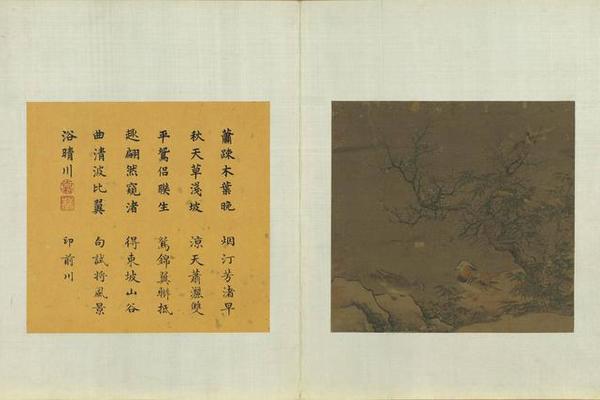 蕭疎木葉晚
秋天草淺坡
平鴛侶聮生
趣翩然窺渚
曲清波比翼
浴晴川
烟汀芳渚早
涼天蕭灑雙
鴛錦翼聯抵
得東坡山谷
句試將風景
印前川